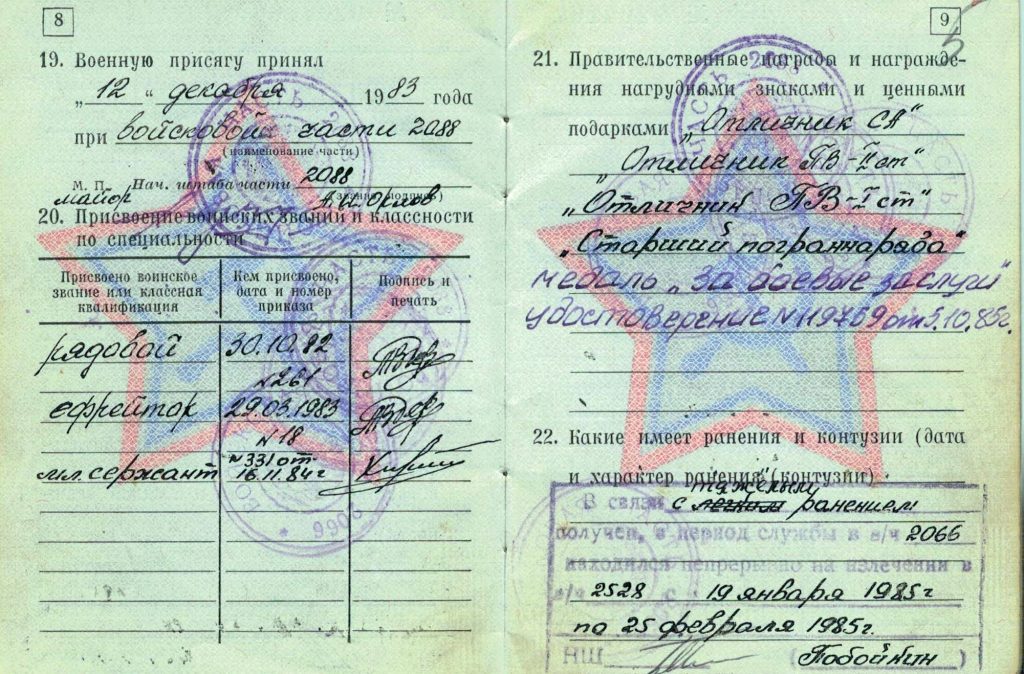 8
19. Военную присягу принял
„ 12 " декабря 1983 года
при войсковой части 2088
(наименование части)
М. П. Нач. штаба части 2088
майор А.И. Орлов
20. Присвоение воинских званий и классности
по специальности
Присвоено воинское звание или классная квалификация
Кем присвоено, дата и номер приказа
Подпись и печать
рядовой 30.10.82
№261
ефрейтор 29.03.1983
№18
мл. сержант №331 от
16.11.84г
* 2066
9
5
21. Правительственные награды и награжде-
ния нагрудными знаками и ценными
подарками „Отличник СА"
„Отличник ПВ-II ст"
„Отличник ПВ-I ст"
„Старший пограннаряда"
медаль „За боевые заслуги"
удостоверение N 119759 от 5.10.85г.
22. Какие имеет ранения и контузии (дата
и характер ранения (контузии)
тяжелым
В связи с легким ранением
получен. в период службы в в/ч 2066
находился непрерывно на излечения в
в/ч 2528 с 19 января 1985г
по 25 февраля 1985г.
НШ (Побойнин)